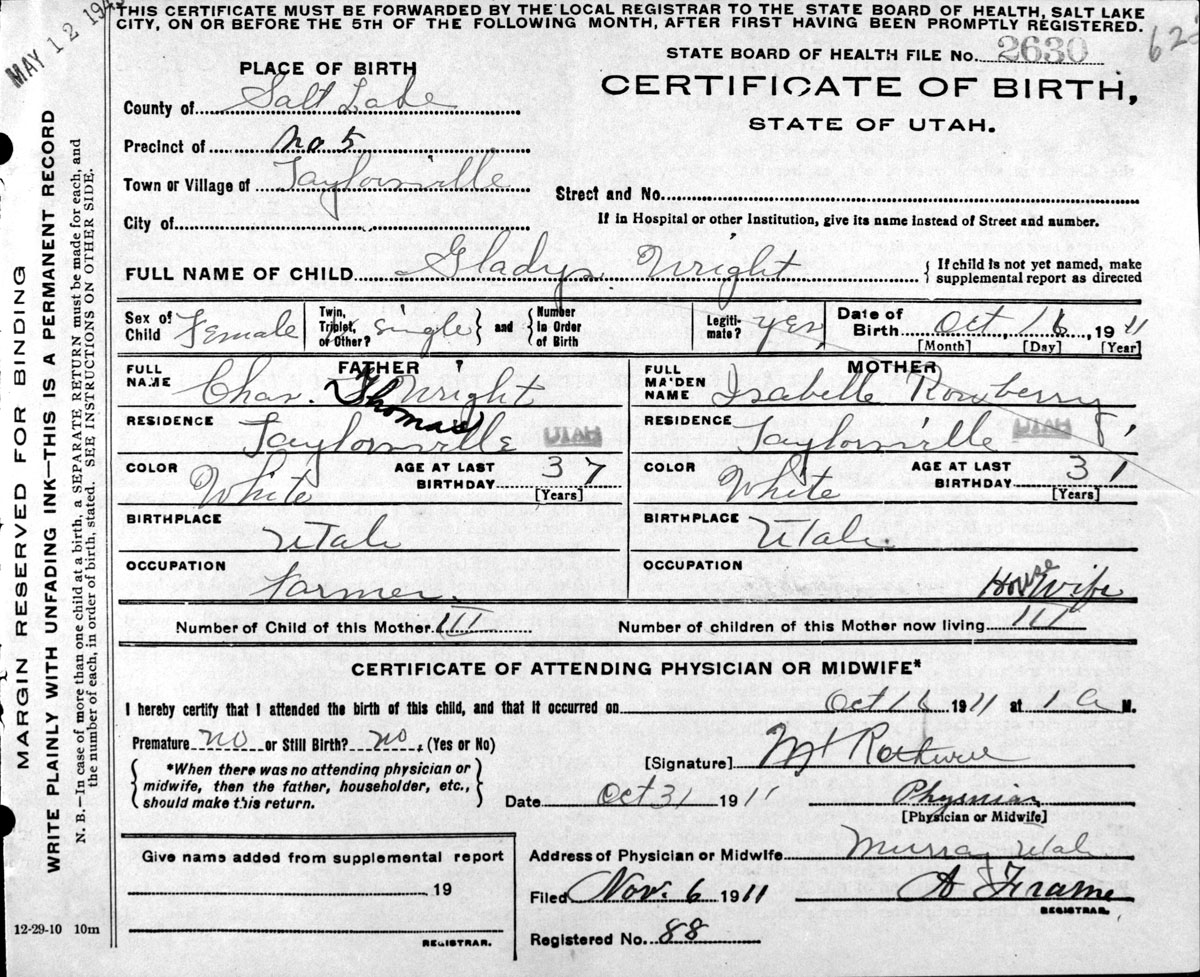 MAY 12 194
THIS CERTIFICATE MUST BE FORWARDED BY THE LOCAL REGISTRAR TO THE STATE BOARD OF HEALTH, SALT LAKE
CITY, ON OR BEFORE THE 5TH OF THE FOLLOWING MONTH, AFTER FIRST HAVING BEEN PROMPTLY REGISTERED.
STATE BOARD OF HEALTH FILE No. 2630
PLACE OF BIRTH
CERTIFICATE OF BIRTH,
STATE OF UTAH.
County of Salt Lake
Precinct of No 5
Town or Village of Taylorsville
Street and No.
City of
If in Hospital or other Institution, give its name instead of Street and number.
FULL NAME OF CHILD Gladys Wright
{ If child is not yet named, make
supplemental report as directed
Sex of Child Female
Twin, Triplet, or Other? Single } and { Number in Order of Birth
Legitimate? Yes
Date of Birth Oct 16, 1911
[Month] [Day] [Year]
FATHER
FULL NAME Chas. Thomas Wright
RESIDENCE Taylorsville UTAH
COLOR White
AGE AT LAST BIRTHDAY 37
[Years]
BIRTHPLACE Utah
OCCUPATION Farmer.
MOTHER
FULL MAIDEN NAME Isabelle Rowberry
RESIDENCE Taylorsville UTAH
COLOR White
AGE AT LAST BIRTHDAY 31
[Years]
BIRTHPLACE Utah
OCCUPATION House Wife
Number of Child of this Mother III
Number of children of this Mother now living III
CERTIFICATE OF ATTENDING PHYSICIAN OR MIDWIFE*
I hereby certify that I attended the birth of this child, and that it occurred on Oct 16 1911 at 1 a M.
Premature no or Still Birth? no. (Yes or No)
{ *When there was no attending physician or
midwife, then the father, householder, etc.,
should make this return. }
[Signature]
Date Oct 31 1911 Physician
[Physician or Midwife]
Give name added from supplemental report
19
REGISTRAR.
Address of Physician or Midwife Murray Utah
Filed Nov. 6 1911 A Frame
REGISTRAR.
Registered No. 88
12-29-10 10m
MARGIN RESERVED FOR BINDING
WRITE PLAINLY WITH UNFADING INK—THIS IS A PERMANENT RECORD
N. B.—In case of more than one child at a birth, a SEPARATE RETURN must be made for each, and
the number of each, in order of birth, stated. SEE INSTRUCTIONS ON OTHER SIDE.